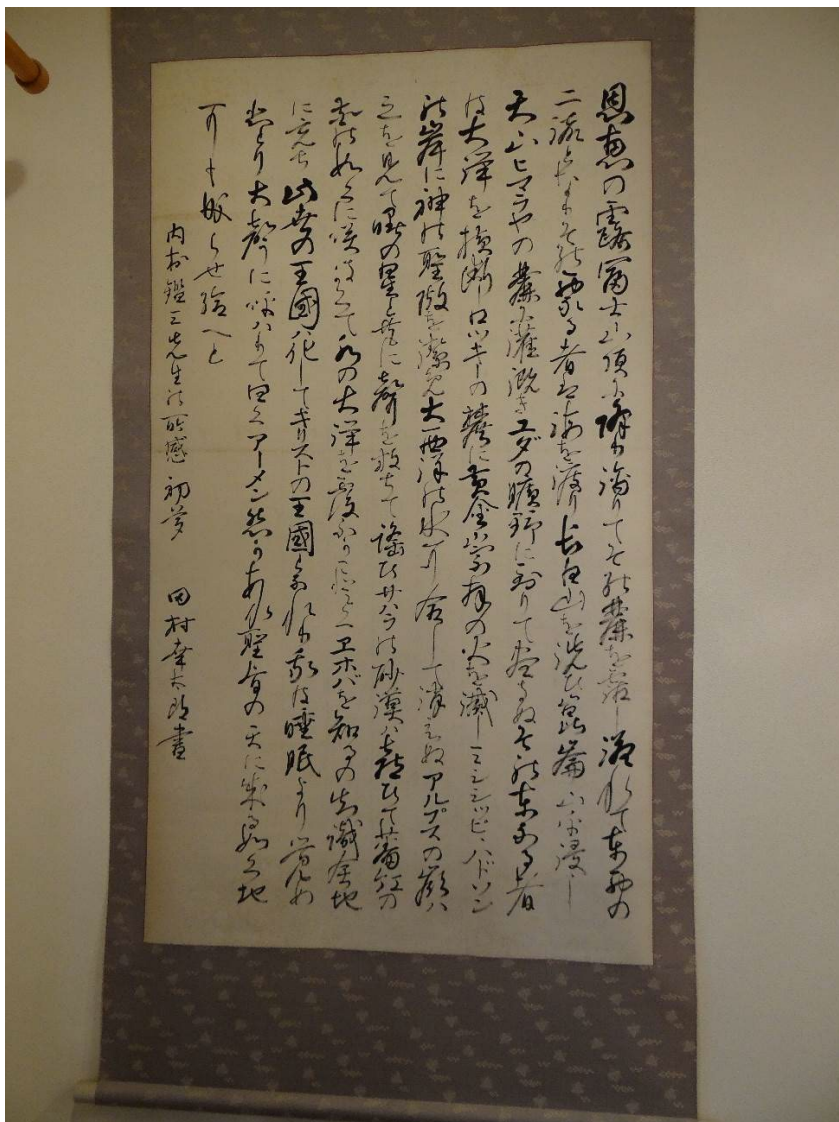 恩恵の露冨士山頂に降り滴りて其麓を霑し溢れて東西の
二流となり其西なる者は海を渡り長白山を洗ひ崑崙山を浸し
天山ヒマラヤの麓に灌漑ぎユダの曠野に到りて尽きぬ其東なる者
は大洋を横断しロッキーの麓に黄金崇拝の火を滅しミシシッピ、ハドソン
の岸に神の聖殿を潔め大西洋の水に合して消えぬアルプスの嶺ハ
之を見て曙の星と共に聲を放ちて謡ひサハラの砂漠ハ喜びて蕃紅の
花の如くに咲き斯くて水の大洋を覆ふが如くエホバを知るの知識全地
に充ち此世の王國ハ化してキリストの王國となれり我は睡眠より覚め
独り大聲に呼ハりて曰くアーメン然かあれ聖旨の天に成る如く地
にも成らせ給へと
内村鑑三先生の所感 初夢 田村幸太郎書